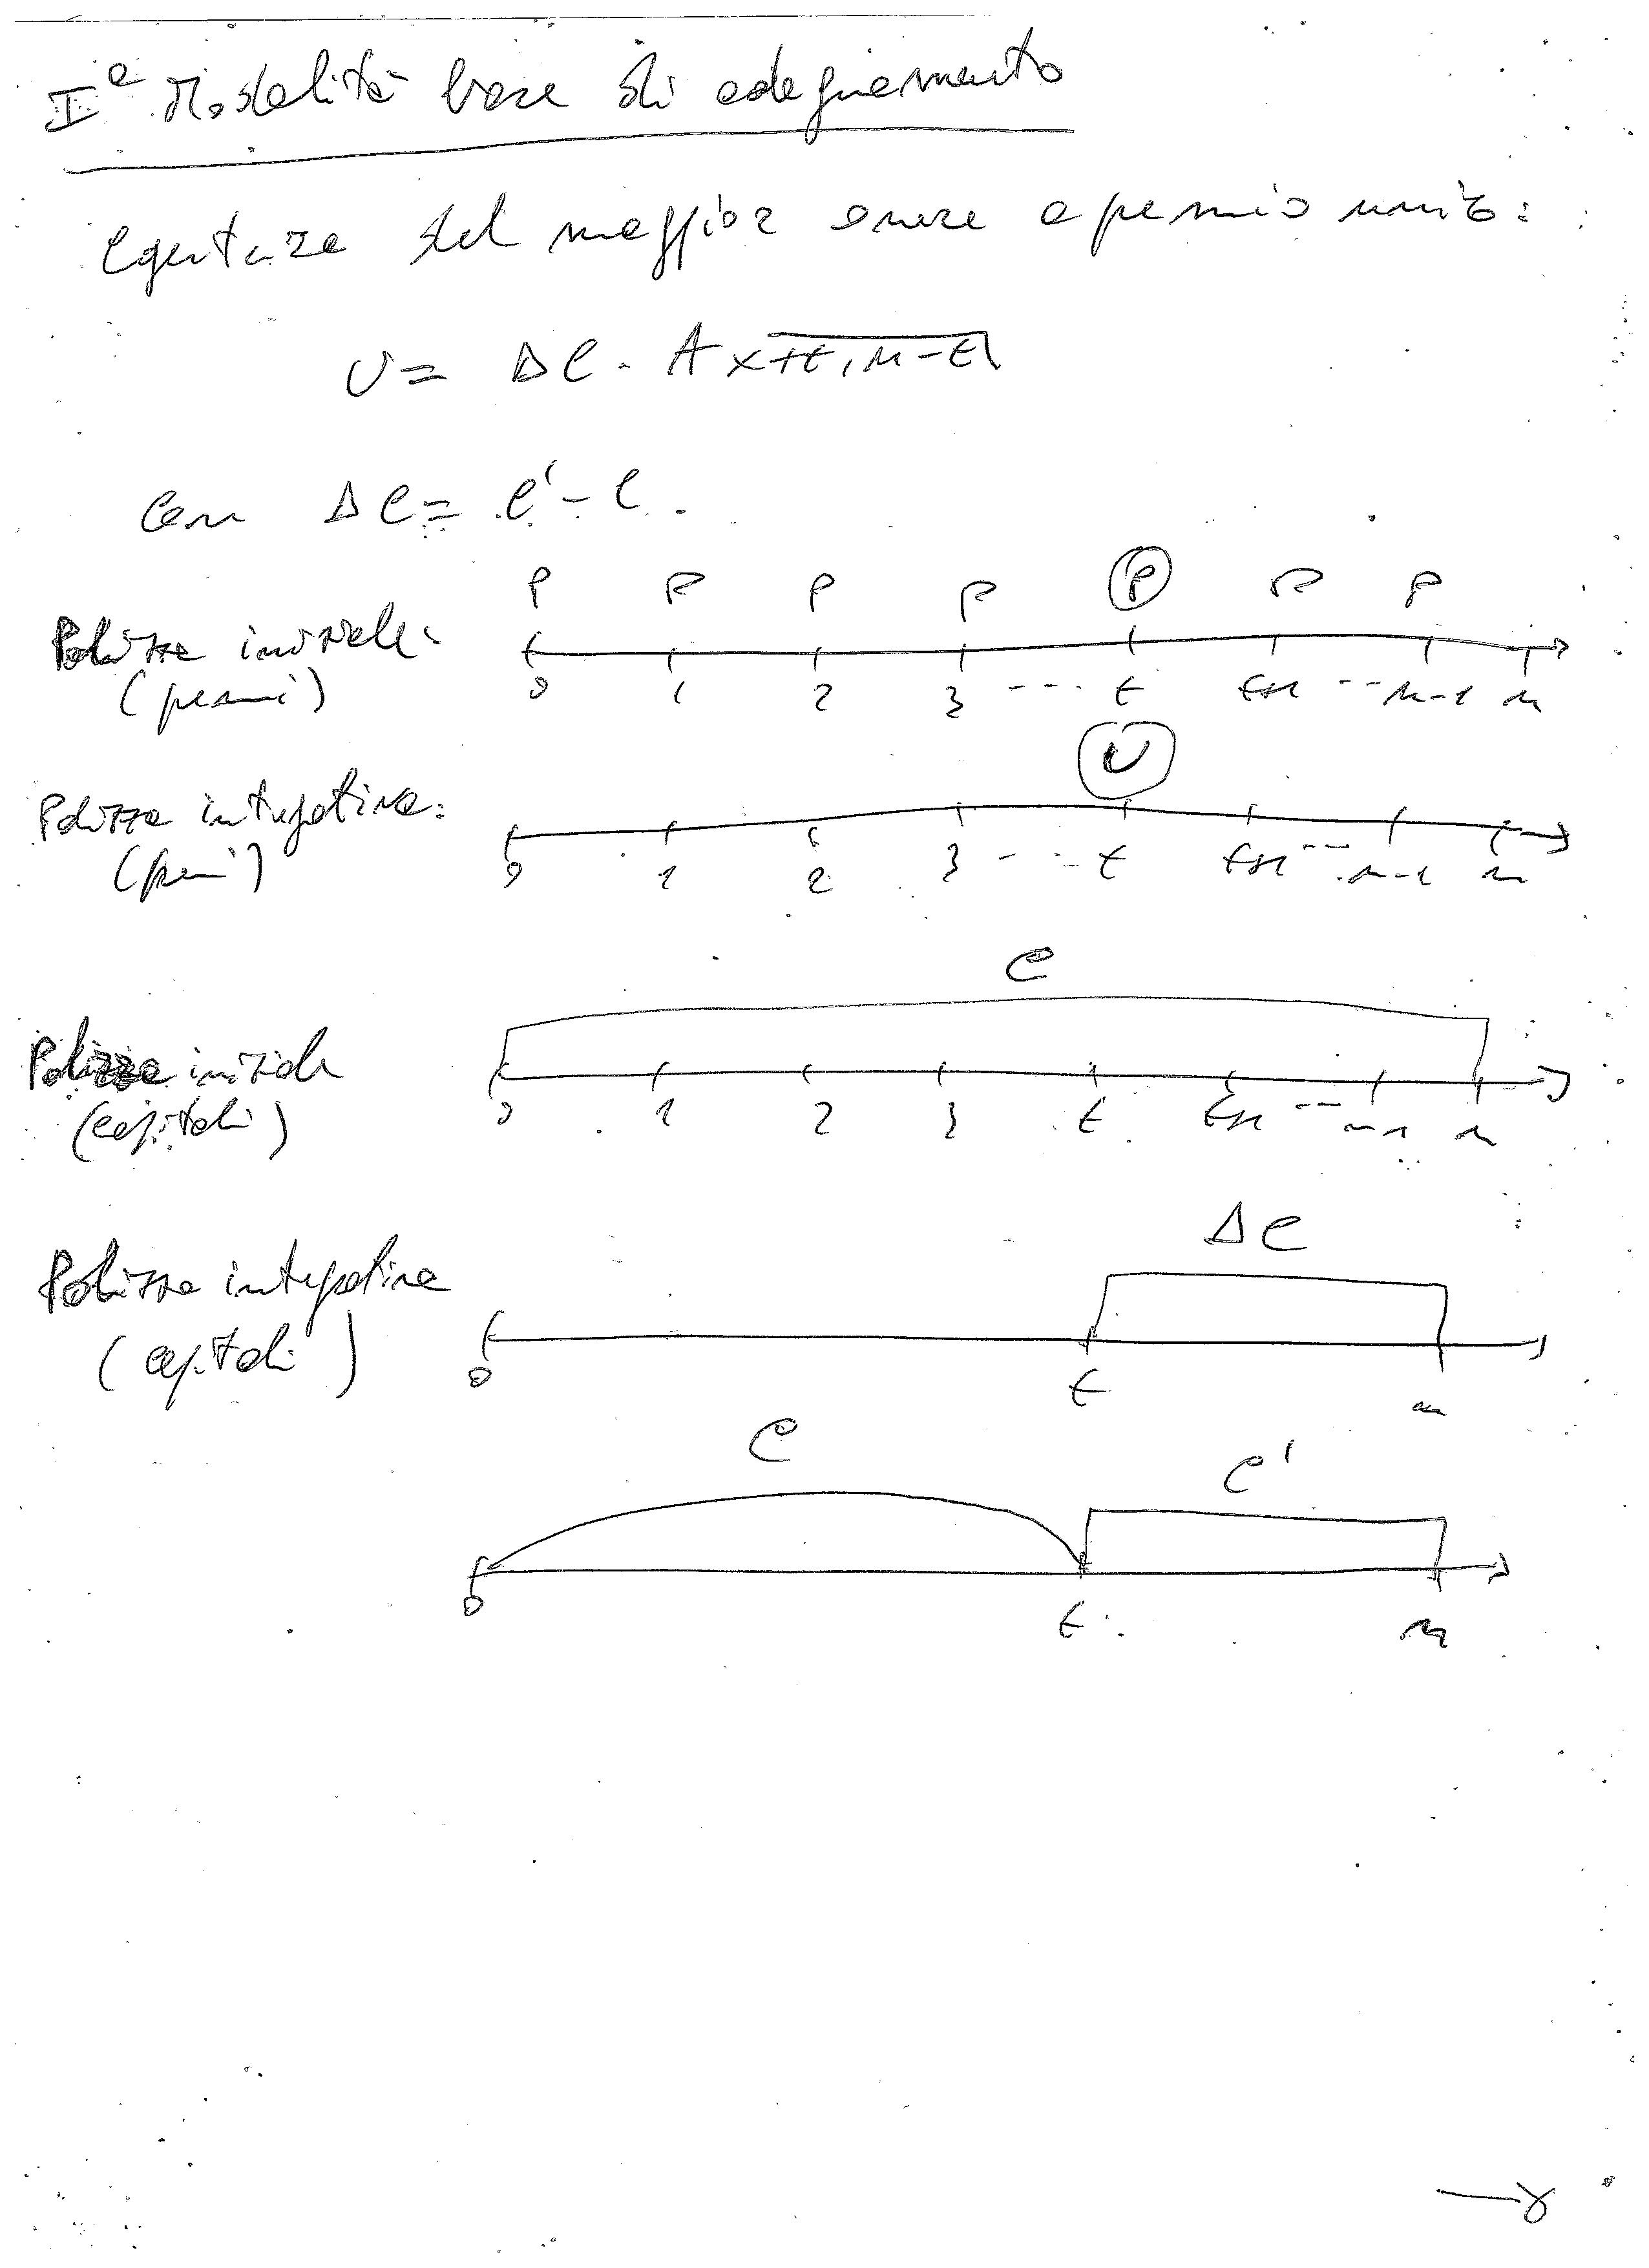 Iª Modalità base di adeguamento
Copertura del maggior onere a premio unico:
U = ΔC · A x+t, n-t|
Con ΔC = C' - C.
P P P P P P P
Polizza iniziale:
(premi)
0 1 2 3 ---- t t+1 --- n-1 n
U
Polizza integrativa:
(premi)
0 1 2 3 ---- t t+1 --- n-1 n
C
Polizza iniziale
(capitali)
0 1 2 3 t t+1 --- n-1 n
ΔC
Polizza integrativa
(capitali)
0 t n
C C'
0 t n